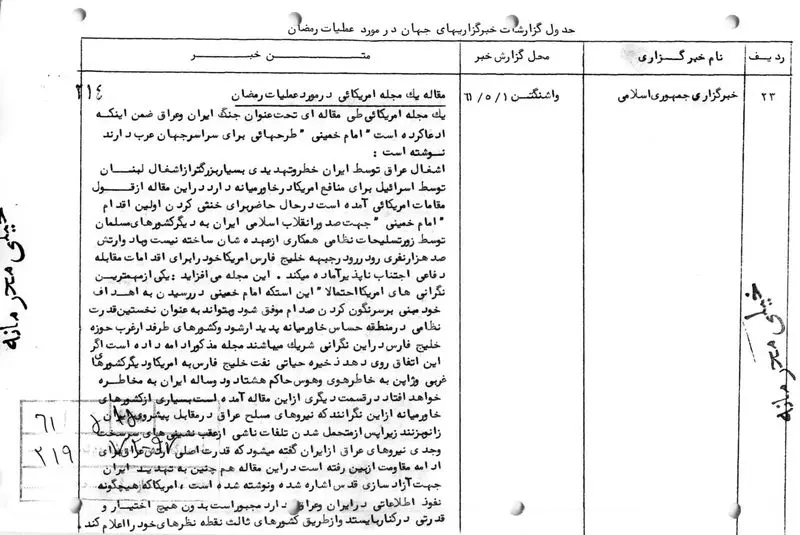 جدول گزارشات خبرگزاریهای جهان در مورد عملیات رمضان
ردیف
نام خبرگزاری
محل گزارش خبر
متن خبر
۲۳
خبرگزاری جمهوری اسلامی
واشنگتن ۶۱/۵/۱
۲۱٤
مقاله یك مجله امریكائی در مورد عملیات رمضان
یك مجله امریكائی طی مقاله ای تحت عنوان جنگ ایران وعراق ضمن اینكه
ادعا كرده است "امام خمینی" طرحهائی برای سراسر جهان عرب دارند
نوشته است :
اشغال عراق توسط ایران خطر وتهدیدی بسیار بزرگتر از اشغال لبنان
توسط اسرائیل برای منافع امریكا در خاورمیانه دارد در این مقاله از قول
مقامات امریكائی آمده است در حال حاضر برای خنثی كردن اولین اقدام
"امام خمینی" جهت صدور انقلاب اسلامی ایران به دیگر كشورهای مسلمان
توسط زور تسلیحات نظامی همكاری از عهده شان ساخته نیست وباد وارتش
صد هزار نفری رود ررود رجبهه خلیج فارس امریكا خود را برای اقدامات مقابله
دفاعی اجتناب ناپذیر آماده میكند . این مجله می افزاید : یكی از مهمترین
نگرانی های امریكا احتمالا" این استكه امام خمینی در رسیدن به اهداف
خود مبنی بر سرنگون كردن صدام موفق شود وبتواند به عنوان نخستین قدرت
نظامی در منطقه حساس خاورمیانه پدیدار شود وكشورهای طرفدار غرب حوزه
خلیج فارس در این نگرانی شریك میباشند مجله مذكور ادامه داده است اگر
این اتفاق روی دهد ذخیره حیاتی نفت خلیج فارس به امریكا ودیگر كشورهای
غربی وژاپن به خاطر هوی وهوس حاكم هشتاد ودوساله ایران به مخاطره
خواهد افتاد در قسمت دیگری از این مقاله آمده است بسیاری از كشورهای
خاورمیانه از این نگرانند كه نیروهای مسلح عراق در مقابل پیشروی ایران
زانو بزنند زیرا پس از متحمل شدن تلفات ناشی از عقب نشینی های سرسخت
وجدی نیروهای عراق از ایران گفته میشود كه قدرت اصلی ارتش عراق برای
ادامه مقاومت از بین رفته است در این مقاله هم چنین به تهدید ایران
جهت آزاد سازی قدس اشاره شده ونوشته شده است ، امریكا كه هیچگونه
نفوذ اطلاعاتی در ایران وعراق دارد مجبور است بدون هیچ اختیار و
قدرتی در كنار بایستد واز طریق كشورهای ثالث نقطه نظرهای خود را اعلام كند .
خیلی محرمانه
خیلی محرمانه
۶۱
۲۱۹